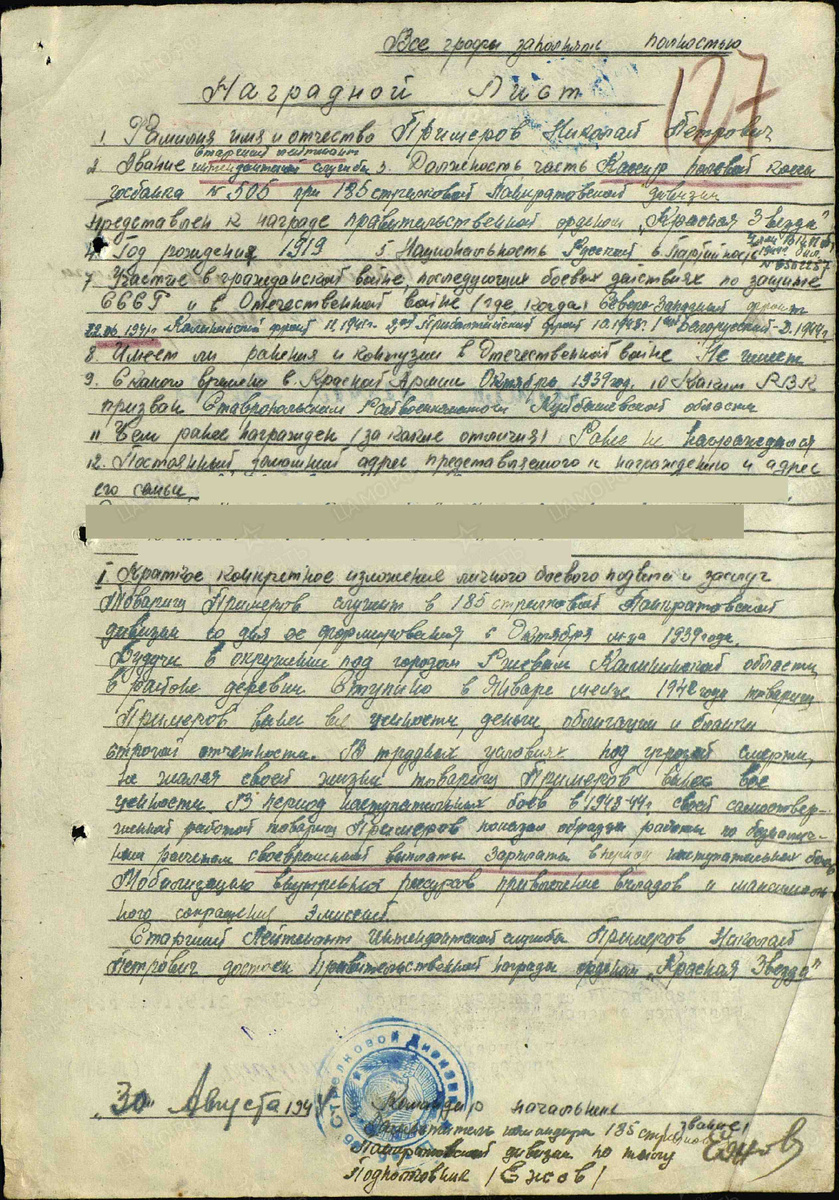 Все графы заполнять полностью
127
Наградной Лист
1. Фамилия имя и отчество Примеров Николай Петрович
2. Звание Старший лейтенант интендантской службы 3. Должность, часть Кассир полевой кассы
госбанка № 505 при 185 стрелковой Панкратовской дивизии
Представлен к награде правительственной орденом „Красная Звезда"
4. Год рождения 1919 5. Национальность Русский 6. Партийность член ВКП(б)
7. Участие в гражданской войне последующих боевых действиях по защите
СССР и в Отечественной войне (где когда) Северо-Западный фронт
22.06 1941г. Калининский фронт 11.1941г. 2ой Прибалтийский фронт 10.1943г. 1ый Белорусский 2.1944г
8. Имеет ли ранения и контузии в Отечественной войне Не имеет
9. С какого времени в Красной Армии Октябрь 1939 год. 10 Каким РВК
призван Ставропольским Райвоенкоматом Куйбышевской области
11. Чем ранее награжден (за какие отличия) Ранее не награждался
12. Постоянный домашний адрес представляемого к награждению и адрес
его семьи
I Краткое, конкретное изложение личного боевого подвига и заслуг
Товарищ Примеров служит в 185 стрелковой Панкратовской
дивизии со дня ее формирования с Октября м-ца 1939 года.
Будучи в окружении под городом Ржевым Калининской области
в районе деревни Ступино в Январе месяце 1942 года товарищ
Примеров вынес все ценности, деньги, облигации и бланки
строгой отчетности. В трудных условиях под угрозой смерти,
не жалея своей жизни товарищ Примеров вынес все
ценности. В период наступательных боев в 1943-44г. своей самоотвер-
женной работой товарищ Примеров показал образцы работы по безналич-
ным расчетам своевременной выплаты зарплаты в период наступательных боев
Мобилизацию внутренних ресурсов привлечение вкладов и максималь-
ного сокращения эмиссией.
Старший Лейтенант Интендантской службы Примеров Николай
Петрович достоен Правительственной награды орденом „Красная Звезда"
"30" Августа 1944
Стрелковой Дивизии
Командир начальник
звание)
Заместитель командира 185 стрелковой
Панкратовской дивизии по тылу
Подполковник (Ежов)
Ежов